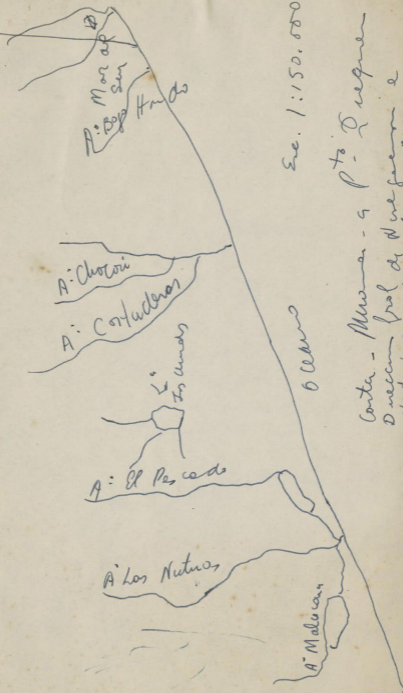 Mar del
Sur
A° Bajo Hondo
A° Chocori
A° Cortaderas
La
A° El Pescado
A° Las Nutrias
A° Malacara
Oceano
Esc. 1:150.000
Costa - a Pto Quequen
Direccion Gral de Navegacion e